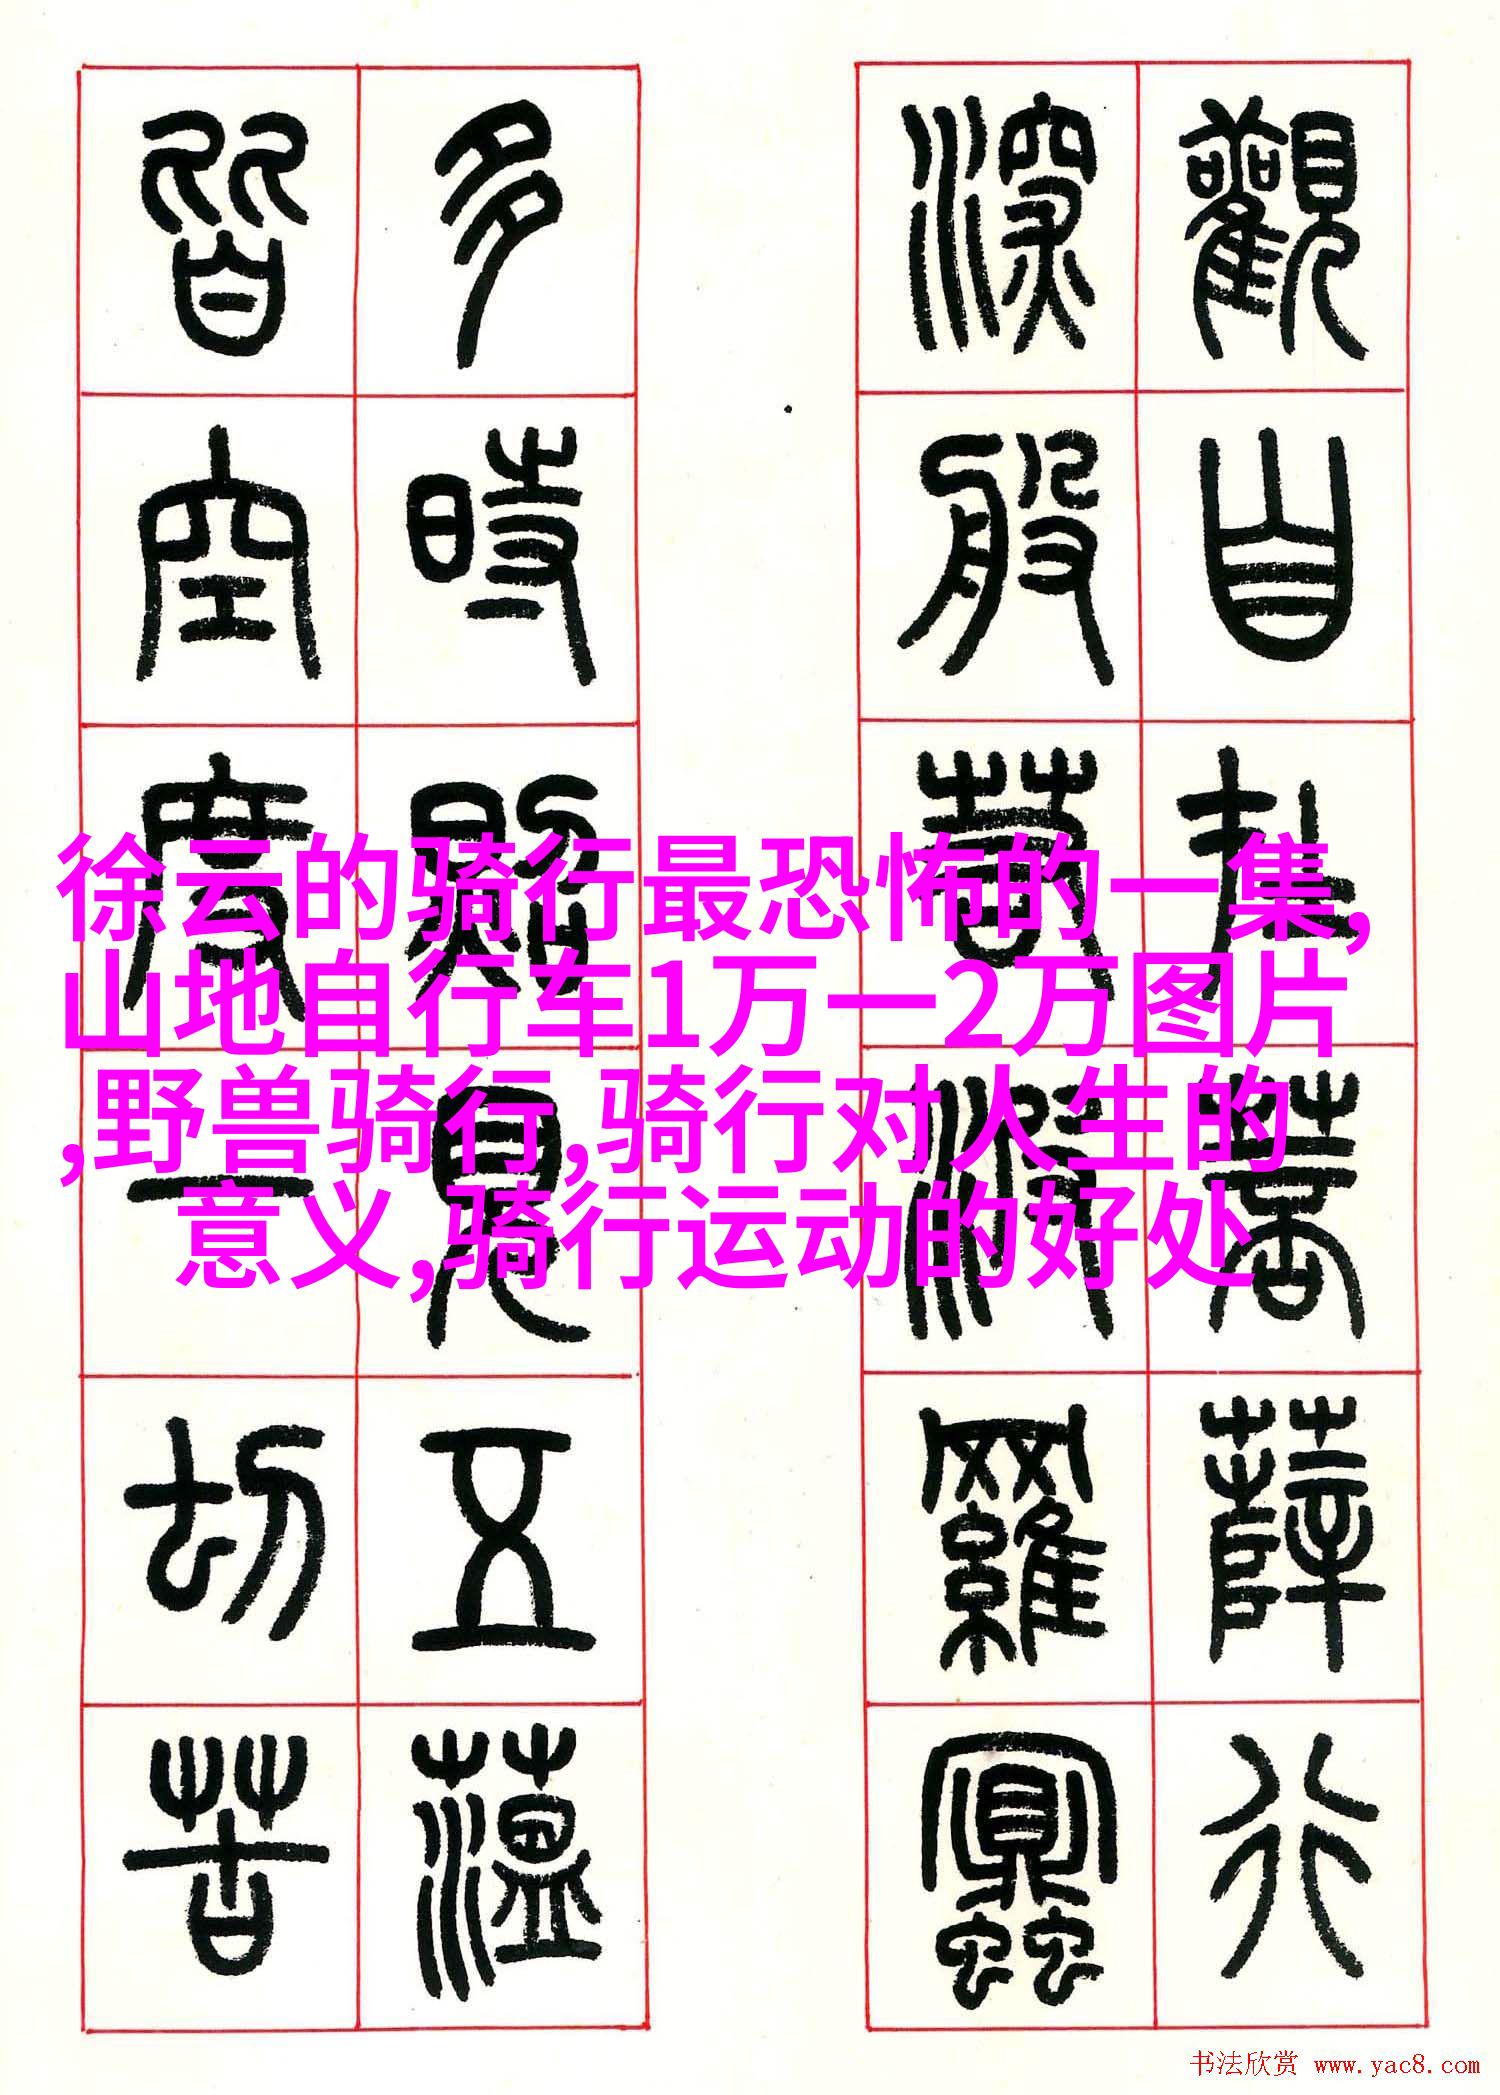 觀自在菩薩行
深般若波羅蜜
多時照見五蘊
皆空度一切苦
徐云的骑行最恐怖的一集,
山地自行车1万一2万图片
,野兽骑行,骑行对人生的
意义,骑行运动的好处
书法欣赏 www.yac8.com